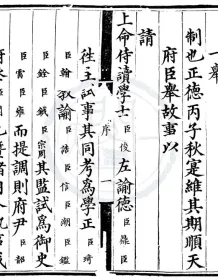 一舉
制也正德丙子秋寔維其期順天
府臣舉故事以
請
上命侍讀學士臣俊左諭德臣鼎臣
徃主試事其同考爲學正臣琦
臣翰敎諭臣誥臣信臣潮臣鑑
臣銓臣鉞臣宗周其監試爲御史
臣雷臣雍而提調則府尹臣韶
序
一